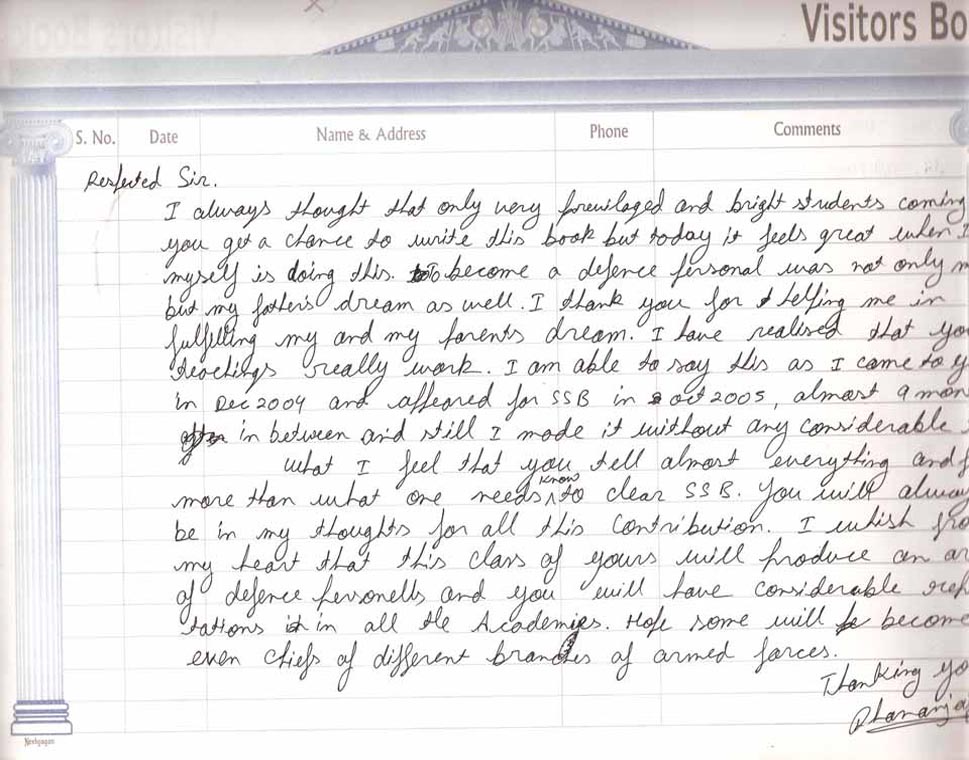 Visitors Bo
S. No. Date Name & Address Phone Comments
Respected Sir.
I always thought that only very previlaged and bright students coming
you get a chance to write this book but today it feels great when I
myself is doing this. To become a defence personal was not only m
but my father's dream as well. I thank you for helping me in
fulfilling my and my parents dream. I have realised that you
teachings really work. I am able to say this as I came to y
in Dec 2004 and appeared for SSB in oct 2005, almost 9 mon
in between and still I made it without any considerable
What I feel that you tell almost everything and
more than what one needs know to clear SSB. You will alway
be in my thoughts for all this contribution. I whish fro
my heart that this class of yours will produce an ar
of defence personells and you will have considerable rep
tations in all the Academies. Hope some will become
even chiefs of different branches of armed forces.
Thanking yo
Dhananja
Neelgagan